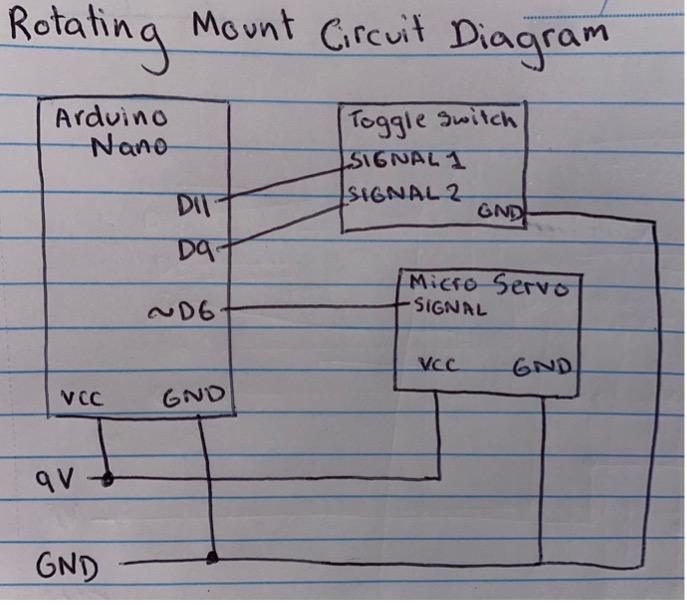 Rotating Mount Circuit Diagram
Arduino
Nano
D11
D9
~D6
VCC GND
Toggle Switch
SIGNAL 1
SIGNAL 2
GND
Micro Servo
SIGNAL
VCC GND
9V
GND